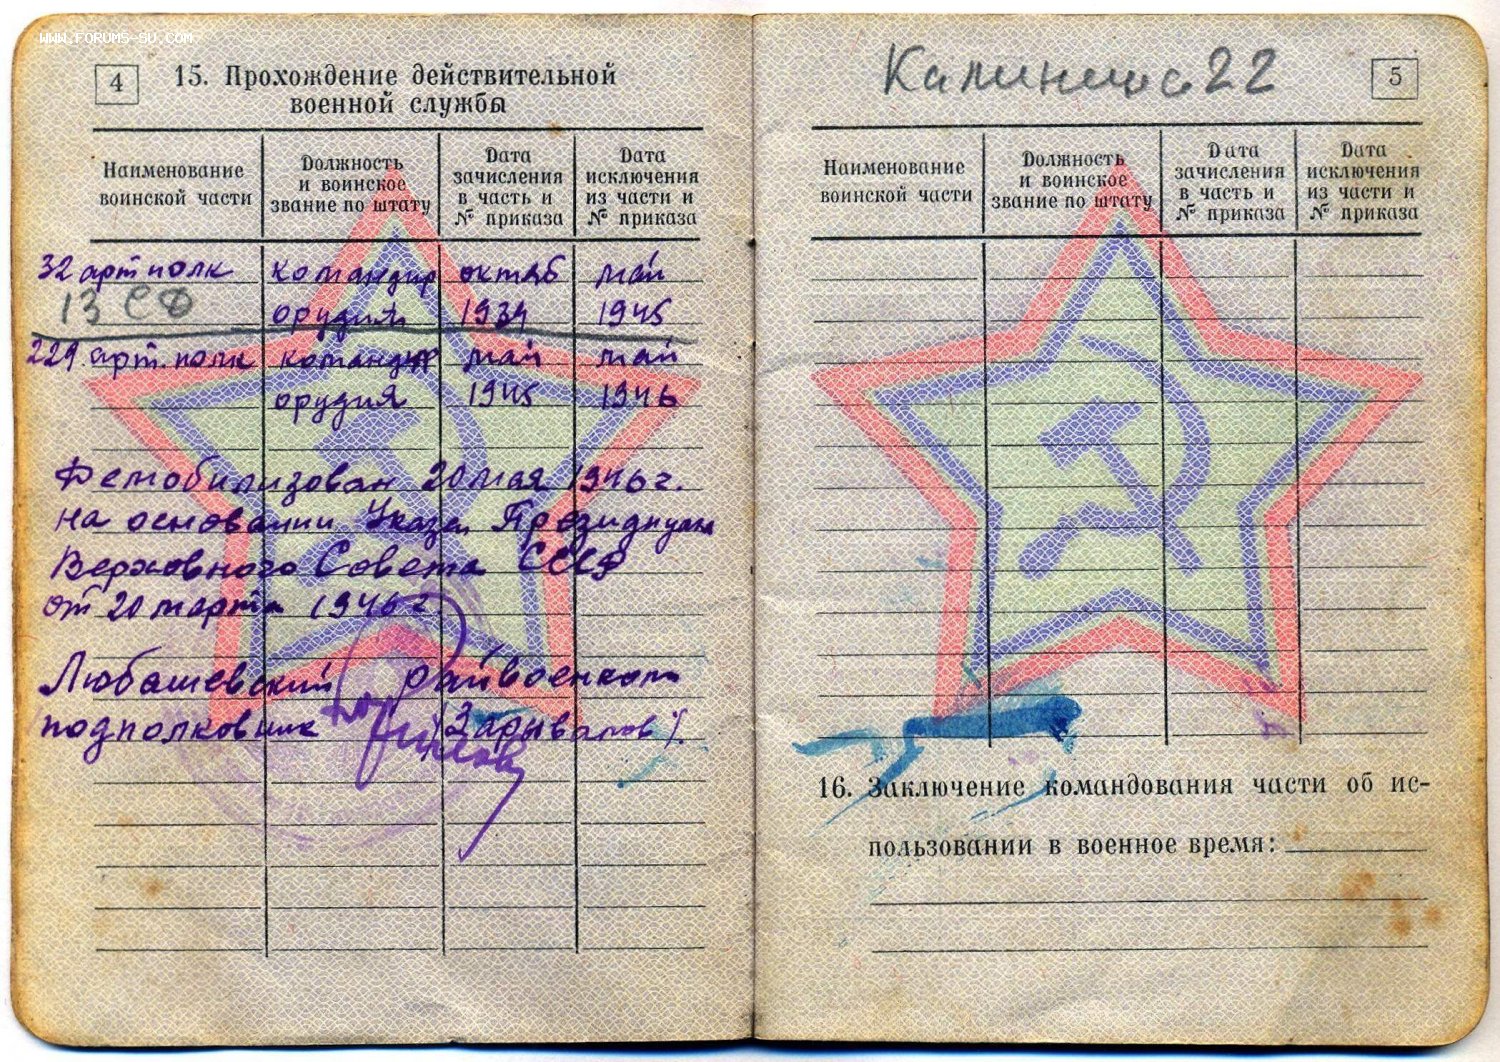 WWW.FORUMS-SU.COM
4
15. Прохождение действительной
военной службы
Наименование
воинской части
Должность
и воинское
звание по штату
Дата
зачисления
в часть и
№ приказа
Дата
исключения
из части и
№ приказа
32 арт полк командир октяб май
13 СД орудия 1939 1945
229. арт. полк командир май май
орудия 1945 1946
Демобилизован 20 мая 1946 г.
на основании Указа Президиума
Верховного Совета СССР
от 20 марта 1946 г
Любашевский райвоенком
подполковник /Зарывалов/.
22
5
Наименование
воинской части
Должность
и воинское
звание по штату
Дата
зачисления
в часть и
№ приказа
Дата
исключения
из части и
№ приказа
16. Заключение командования части об ис-
пользовании в военное время: